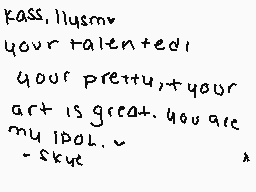 Kass, llysm♥
your talented!
your pretty, + your
art is great. you are
my IDOL. ♥
- Skye